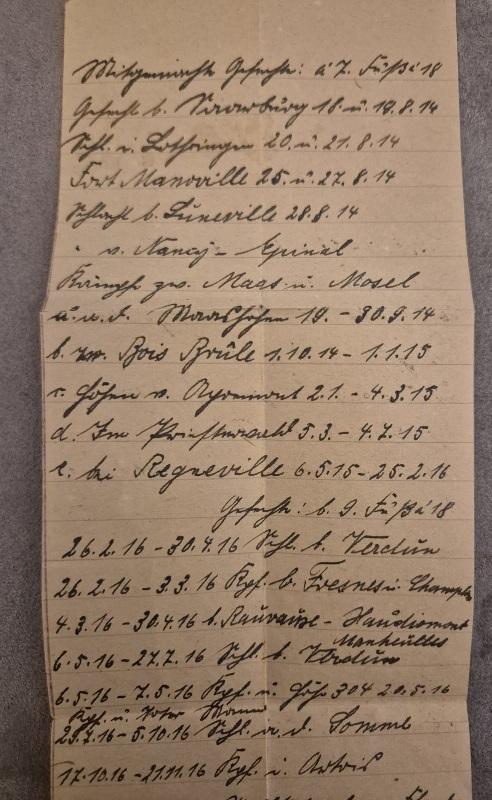 Mitgemachte Gefechte: a 7. Fußa 18
Gefecht b. Saarburg 18. u. 19.8.14
Schl. i. Lothringen 20. u. 21.8.14
Fort Manoville 25. u. 27.8.14
Schlacht b. Luneville 28.8.14
" v. Nancy - Epinal
Kämpfe zw. Maas u. Mosel
a. a. d. Maashöhen 19. - 30.9.14
b. zw. Bois Brûle 1.10.14 - 1.1.15
c. Höhen v. Apremont 2.1. - 4.3.15
d. Im Priesterwald 5.3. - 4.7.15
e. bei Regneville 6.5.15 - 25.2.16
Gefechte: b. 9. Fußa 18
26.2.16 - 30.4.16 Schl. b. Verdun
26.2.16 - 3.3.16 Kpf. b. Fresnes u. Champlon
4.3.16 - 30.4.16 b. - Haudiomont
Manheulles
6.5.16 - 27.7.16 Schl. b. Verdun
6.5.16 - 7.5.16 Kpf. u. Höhe 304 20.5.16
Kpf. u. Toter Mann
25.7.16 - 5.10.16 Schl. a. d. Somme
17.10.16 - 21.11.16 Kpf. i. Artois